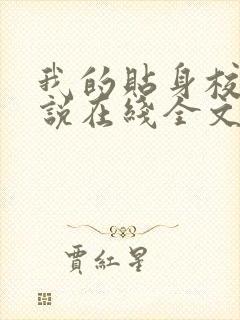 我的貼身校
說在綫全文
賈紅星